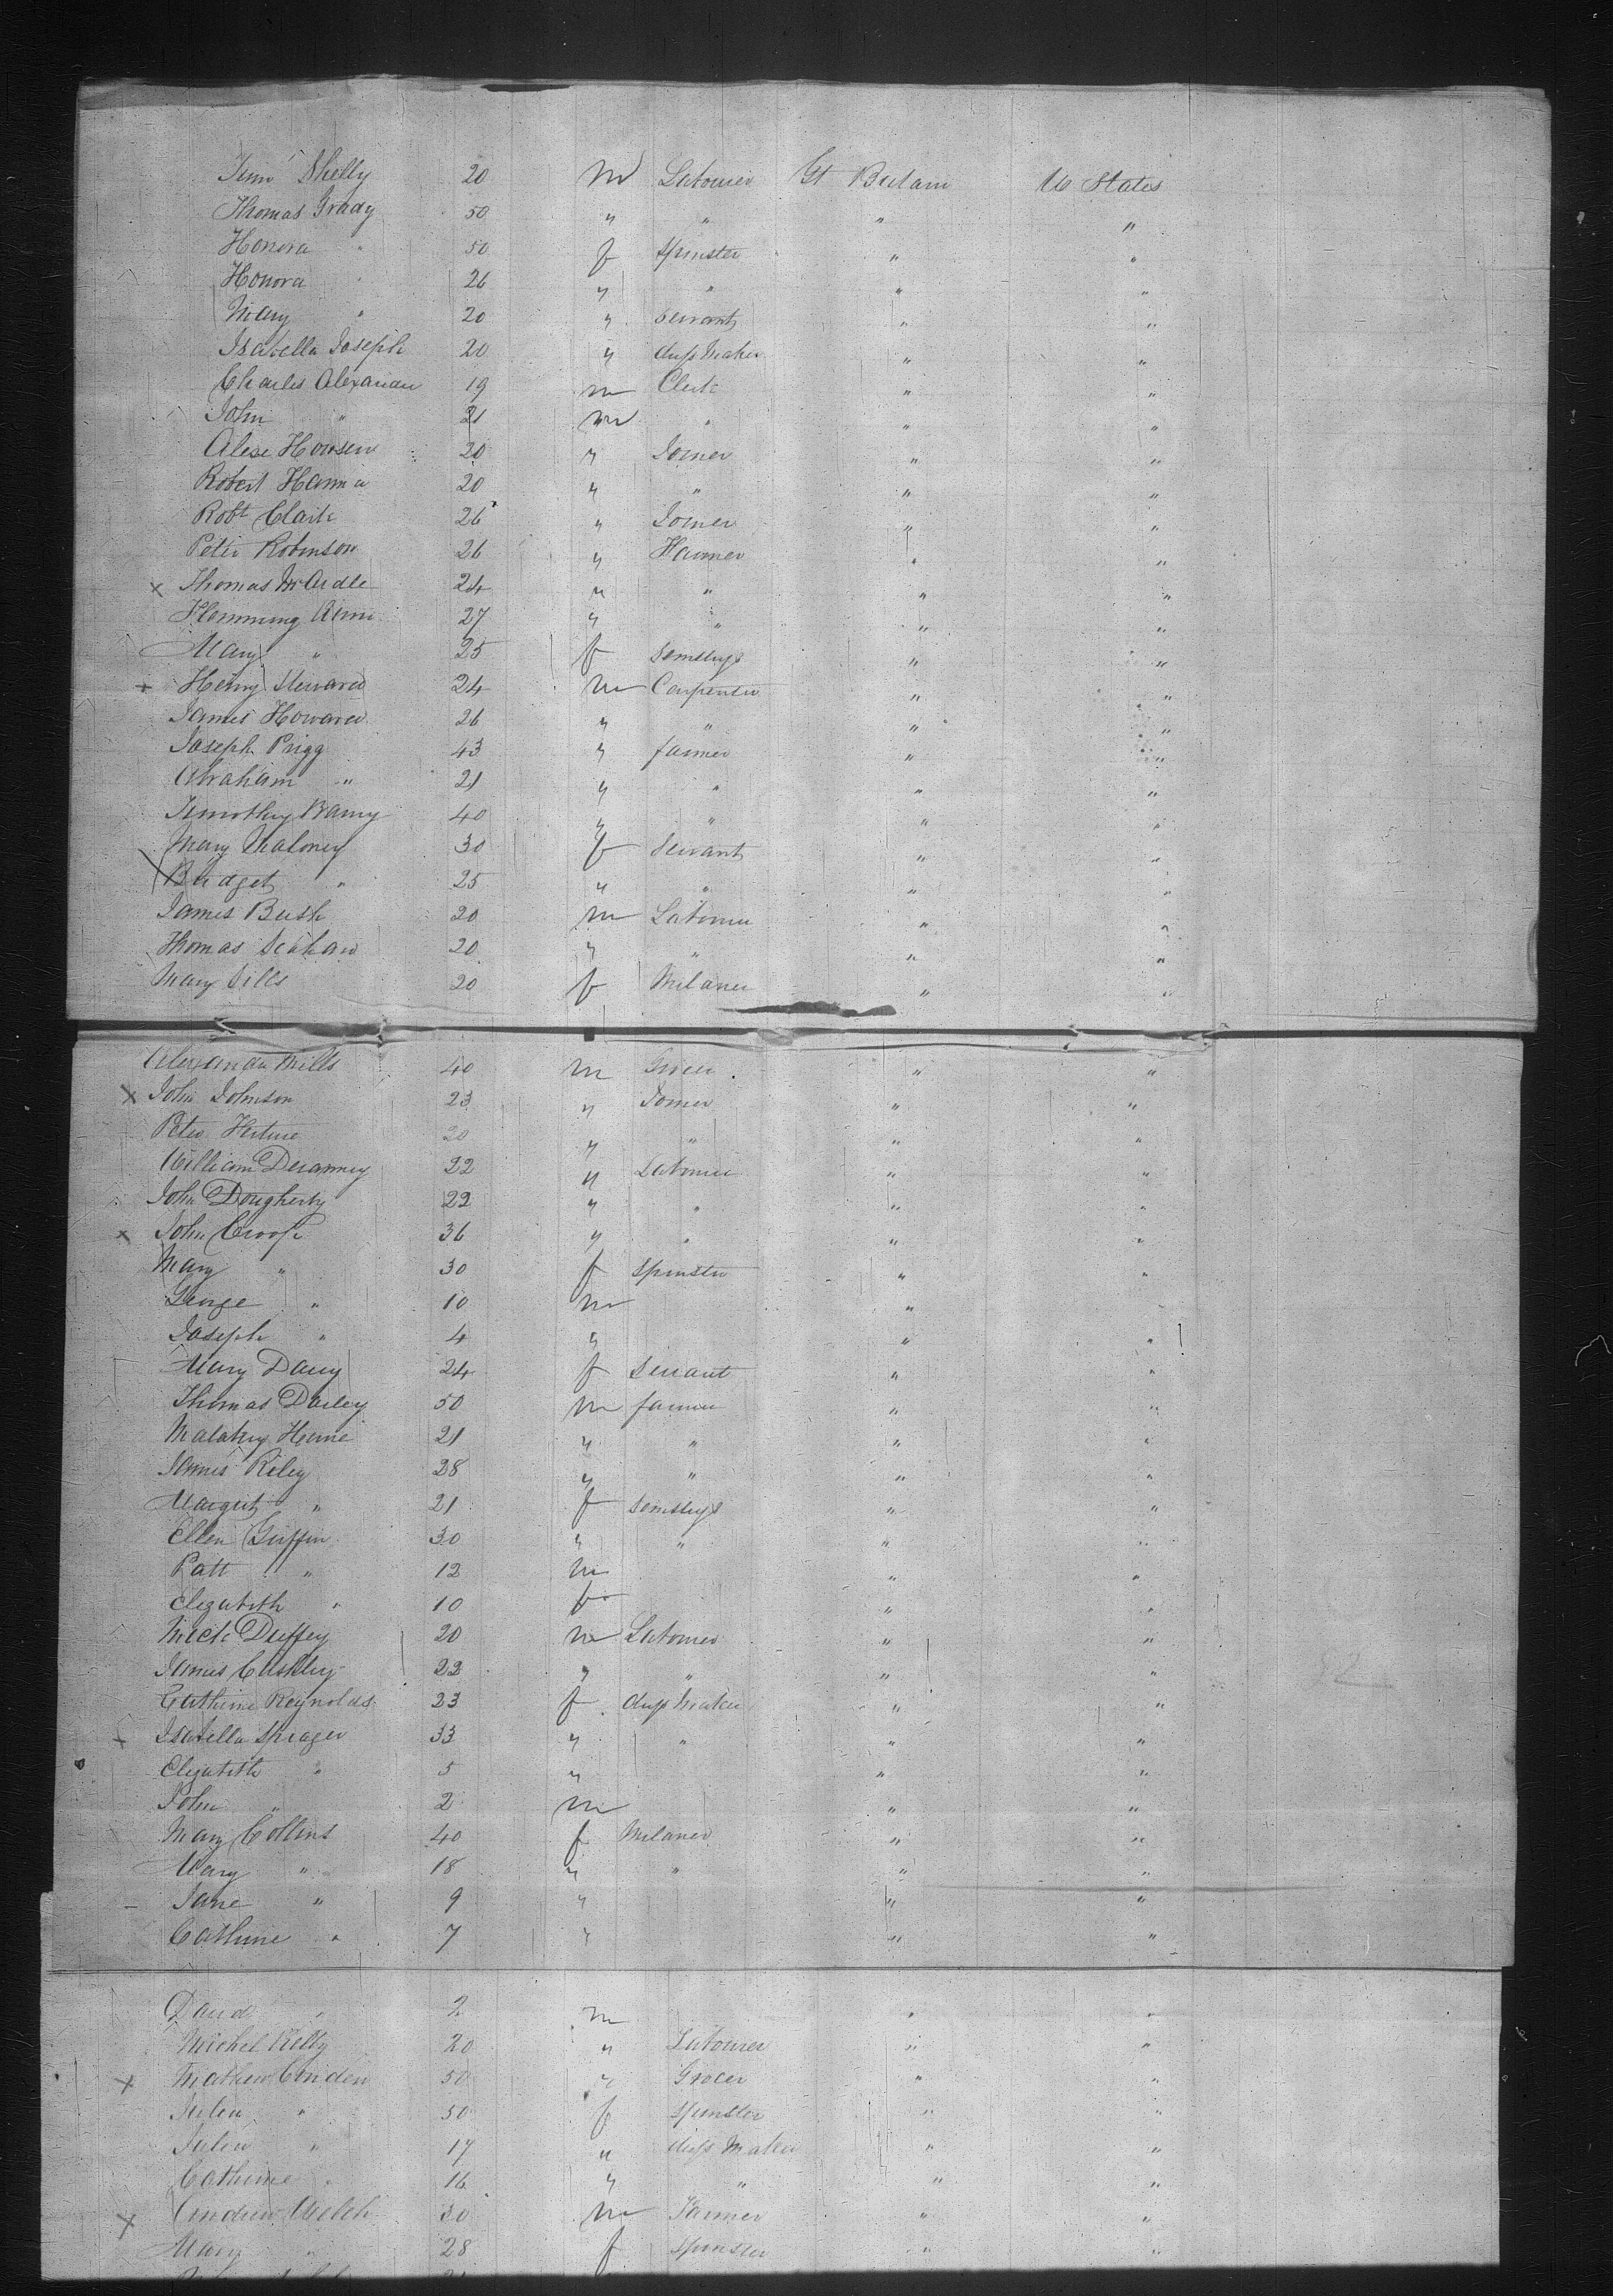 Shelly 20 m Labourer Gt Britain U States
Thomas Grady 50 " " " "
Honora " 50 f Spinster " "
Honora " 26 " " " "
Mary " 20 " Servant " "
Isabella Joseph 20 " dress Maker " "
Charles Alexander 19 m Clerk " "
John " 21 m " " "
Alexr Howsen 20 " Joiner " "
Robert Hanna 20 " " " "
Robt Clark 26 " Joiner " "
Peter Robinson 26 " Farmer " "
x Thomas McArdle 24 " " " "
Hemming 27 " " " "
Mary " 25 f " "
+ Henry Steward 24 m Carpenter " "
James Howard 26 " " " "
Joseph Prigg 43 " farmer " "
Abraham " 21 " " " "
Timothy 40 " " " "
Mary Maloney 30 f Servant " "
Bridget " 25 " " " "
James Bush 20 m Labourer " "
Thomas 20 " " " "
Mary Sills 20 f Milaner " "
Alexander Mills 40 m Grocer " "
x John Johnson 23 " Joiner " "
Peter 20 " " " "
William 22 " Labourer " "
John Dougherty 22 " " " "
x John 36 " " " "
Mary " 30 f Spinster " "
George " 10 m " "
Joseph " 4 " " "
Mary 24 f Servant " "
Thomas Darley 50 m farmer " "
Malakey 21 " " " "
James Riley 28 " " " "
Margret " 21 f " "
Ellen Griffin 30 " " " "
Patt " 12 m " "
Elizabeth " 10 f " "
Mick Duffey 20 m Labourer " "
James 22 " " " "
Catherine Reynolds 23 f dress Maker " "
+ Isabella Sprager 33 " " " "
Elizabeth " 5 " " "
John " 2 m " "
Mary Collins 40 f Milaner " "
Mary " 18 " " " "
Jane " 9 " " "
Catherine " 7 " " "
David " 2 m " "
Michel Kelly 20 " Labourer " "
x Mathew 50 " Grocer " "
" 50 f Spinster " "
" 17 " dress Maker " "
Catherine " 16 " " " "
x Andrew Welch 30 m Farmer " "
Mary " 28 f Spinster " "